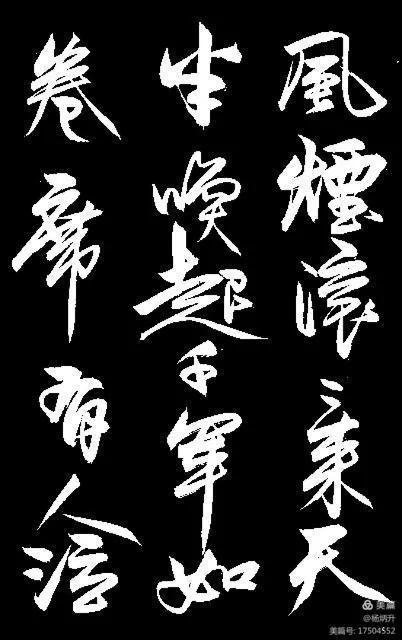 風煙滚〻来天
半喚起千軍如
卷席有人泣
美篇
@杨炳升
美篇号: 17504552